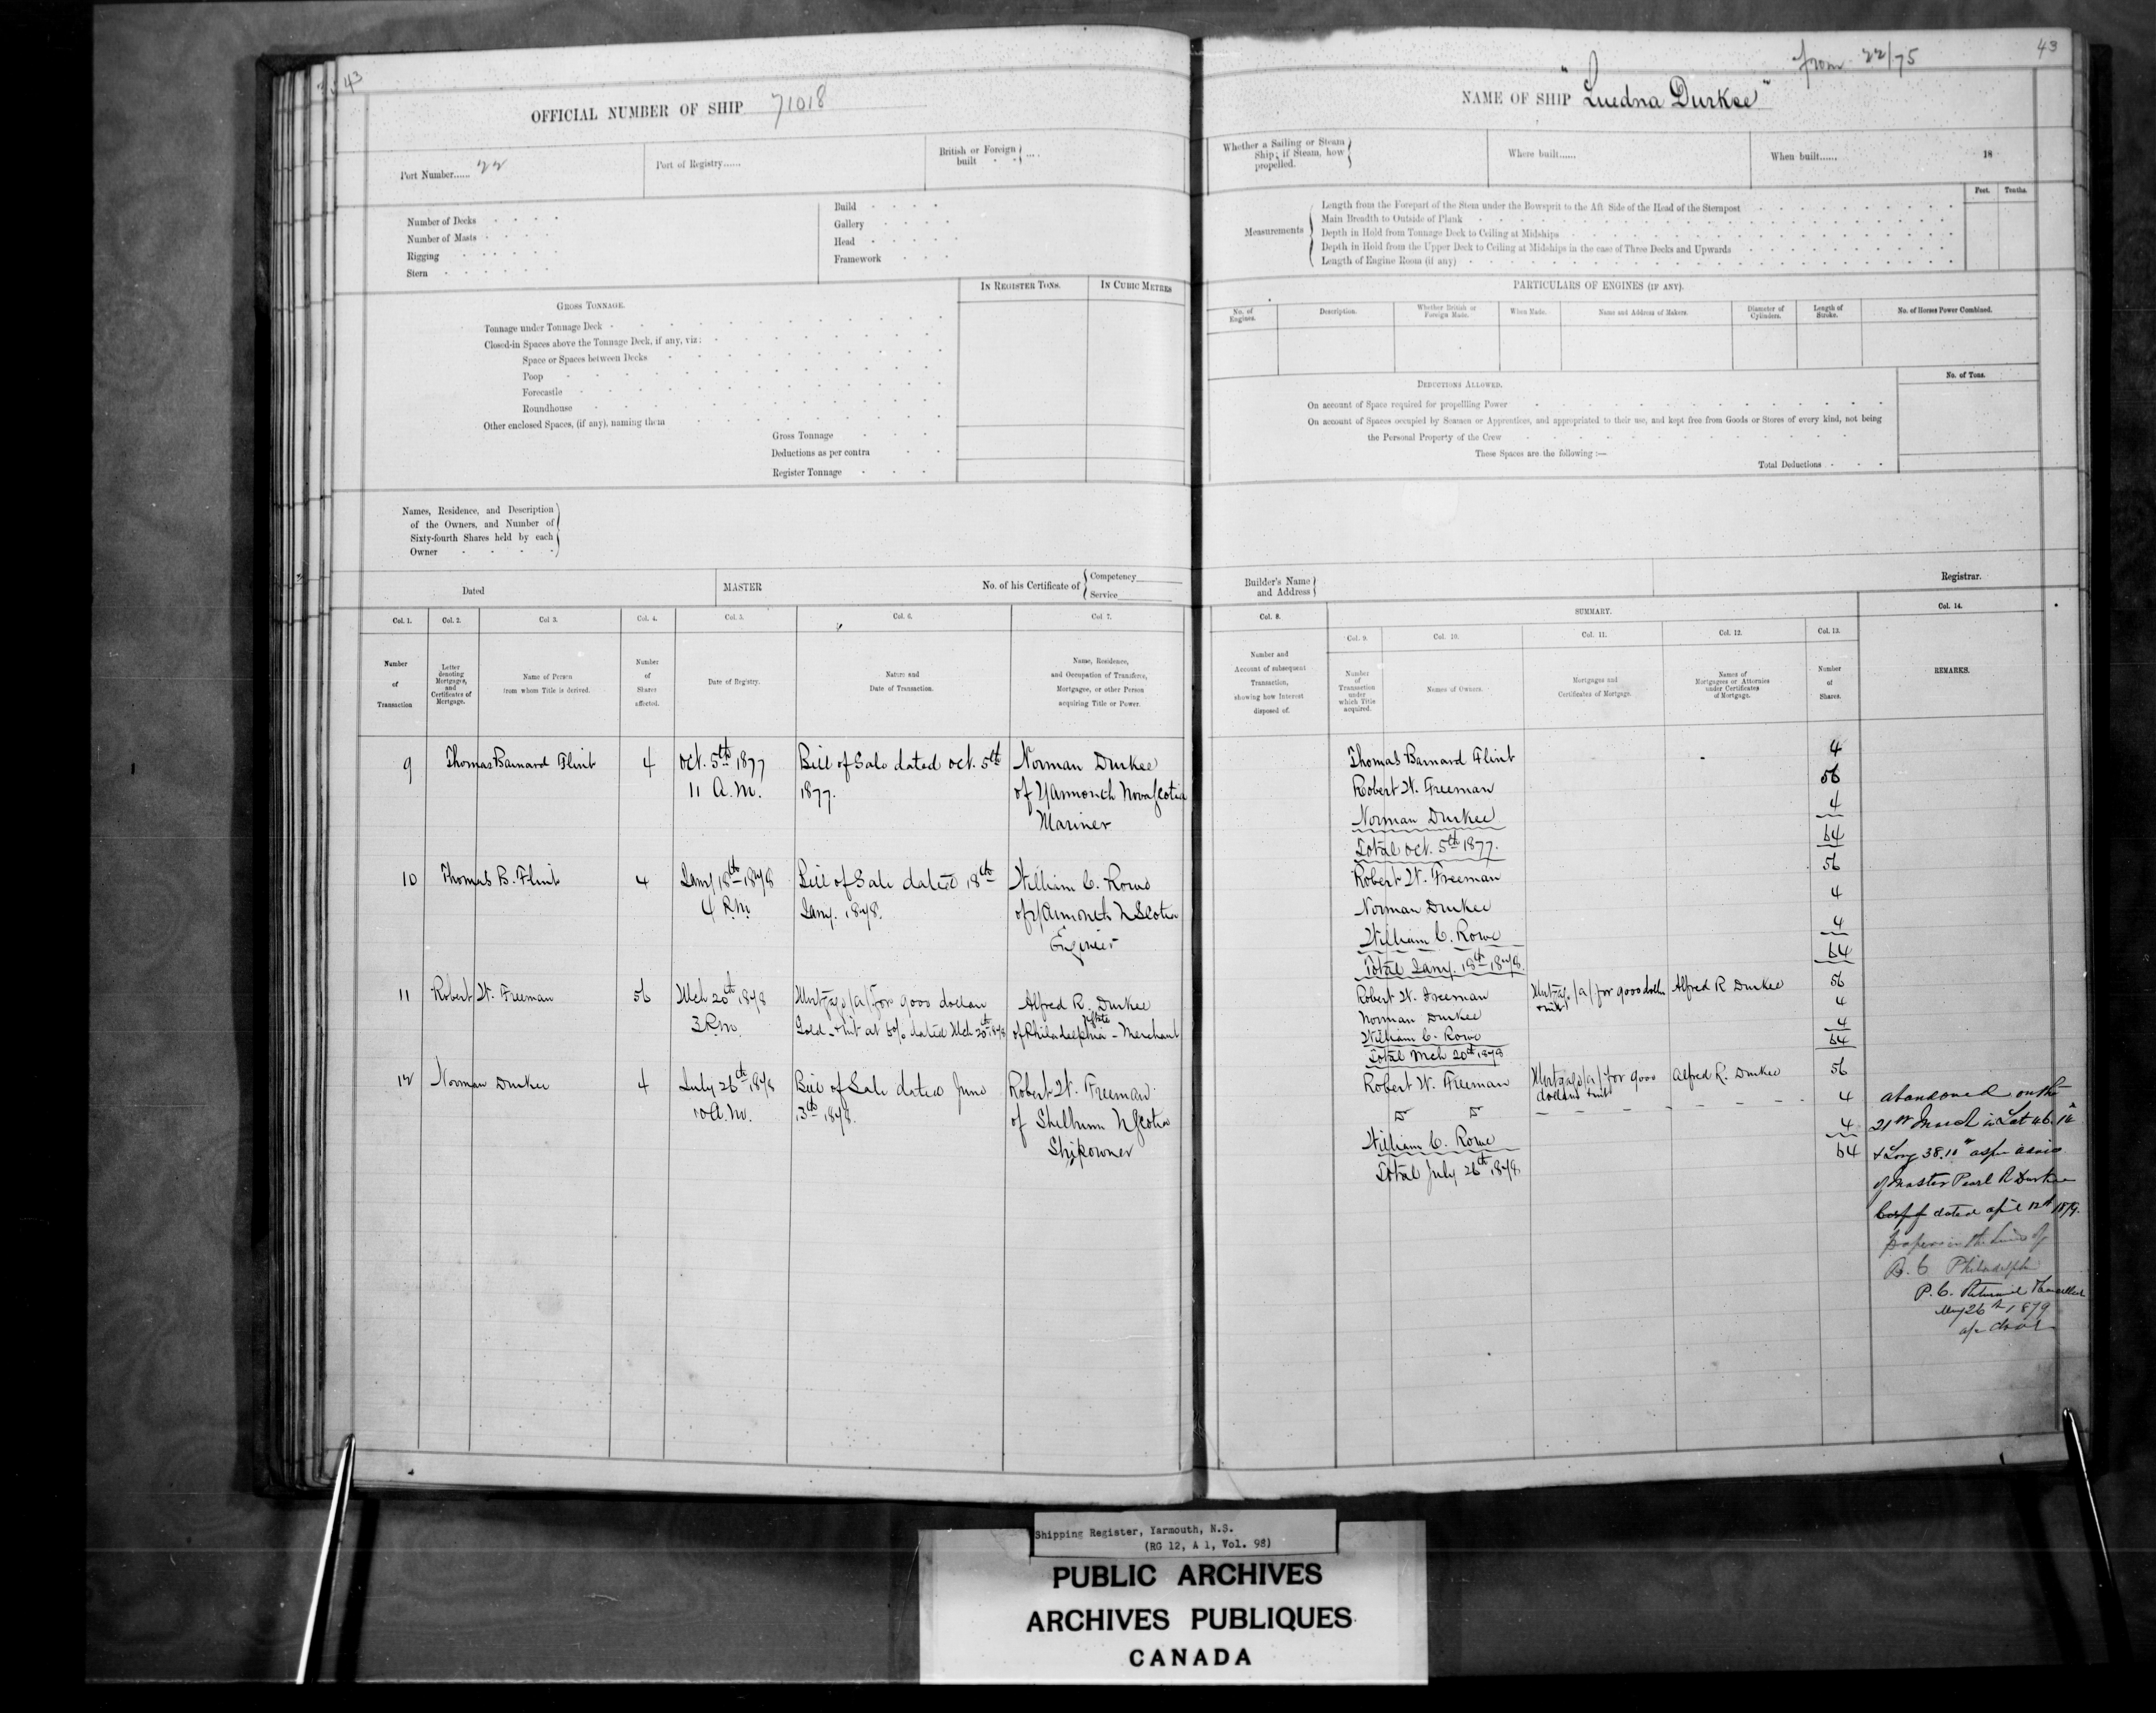 43
OFFICIAL NUMBER OF SHIP 71018
Port Number...... 22
Port of Registry......
British or Foreign built
Number of Decks
Number of Masts
Rigging
Stern
Build
Gallery
Head
Framework
IN REGISTER TONS.
IN CUBIC METRES
GROSS TONNAGE.
Tonnage under Tonnage Deck
Closed-in Spaces above the Tonnage Deck, if any, viz:
Space or Spaces between Decks
Poop
Forecastle
Roundhouse
Other enclosed Spaces, (if any), naming them
Gross Tonnage
Deductions as per contra
Register Tonnage
Names, Residence, and Description
of the Owners, and Number of
Sixty-fourth Shares held by each
Owner
Dated
MASTER
No. of his Certificate of
Competency
Service
Col. 1.
Col. 2.
Col 3.
Col. 4.
Col. 5.
Col. 6.
Col 7.
Number of Transaction
Letter denoting Mortgages, and Certificates of Mortgage.
Name of Person from whom Title is derived.
Number of Shares affected.
Date of Registry.
Nature and Date of Transaction.
Name, Residence, and Occupation of Transferee, Mortgagee, or other Person acquiring Title or Power.
9 Thomas Barnard Flint 4 Oct. 5th 1877 Bill of Sale dated Oct. 5th Norman Durkee
11 A.M. 1877. of Yarmouth Nova Scotia
Mariner
10 Thomas B. Flint 4 Jany 18th 1878 Bill of Sale dated 18th William C. Rowe
4 P.M. Jany. 1878. of Yarmouth N Scotia
Engineer
11 Robert W. Freeman 56 Mch 20th 1878 Mortgage (A) for 9000 dollars Alfred R. Durkee
3 P.M. Gold at dated Mch 20th 1878 of Philadelphia - Merchant
12 Norman Durkee 4 July 26th 1878 Bill of Sale dated June Robert W. Freeman
10 A.M. 13th 1878. of Shelburne N Scotia
Shipowner
43
from 22/75
NAME OF SHIP "Luedna Durkee"
Whether a Sailing or Steam Ship; if Steam, how propelled.
Where built......
When built......
18
Measurements
Feet.
Tenths.
Length from the Forepart of the Stem under the Bowsprit to the Aft Side of the Head of the Sternpost
Main Breadth to Outside of Plank
Depth in Hold from Tonnage Deck to Ceiling at Midships
Depth in Hold from the Upper Deck to Ceiling at Midships in the case of Three Decks and Upwards
Length of Engine Room (if any)
PARTICULARS OF ENGINES (IF ANY).
No. of Engines.
Description.
Whether British or Foreign Made.
When Made.
Name and Address of Makers.
Diameter of Cylinders.
Length of Stroke.
No. of Horses Power Combined.
DEDUCTIONS ALLOWED.
No. of Tons.
On account of Space required for propelling Power
On account of Spaces occupied by Seamen or Apprentices, and appropriated to their use, and kept free from Goods or Stores of every kind, not being
the Personal Property of the Crew
These Spaces are the following :—
Total Deductions
Builder's Name and Address
Registrar.
Col. 8.
SUMMARY.
Col. 14.
Col. 9.
Col. 10.
Col. 11.
Col. 12.
Col. 13.
Number and Account of subsequent Transaction, showing how Interest disposed of.
Number of Transaction under which Title acquired.
Names of Owners.
Mortgages and Certificates of Mortgage.
Names of Mortgagees or Attornies under Certificates of Mortgage.
Number of Shares.
REMARKS.
Thomas Barnard Flint 4
Robert W. Freeman 56
Norman Durkee 4
Total Oct. 5th 1877. 64
Robert W. Freeman 56
Norman Durkee 4
William C. Rowe 4
Total Jany. 18th 1878. 64
Robert W. Freeman Mortgage (A) for 9000 dollars Alfred R Durkee 56
Norman Durkee 4
William C. Rowe 4
Total Mch 20th 1878 64
Robert W. Freeman Mortgage (A) for 9000 Alfred R. Durkee 56
dollars
Do Do 4
William C. Rowe 4
Total July 26th 1878 64
Abandoned on the
21st March in Lat 46.
& Long 38.10 as per advice
of Master Pearl R Durkee
dated April 12th 1879.
Papers in the hands of
B. C Philadelphia
P. C. Returned & Cancelled
May 26th 1879
Shipping Register, Yarmouth, N.S.
(RG 12, A 1, Vol. 98)
PUBLIC ARCHIVES
ARCHIVES PUBLIQUES
CANADA